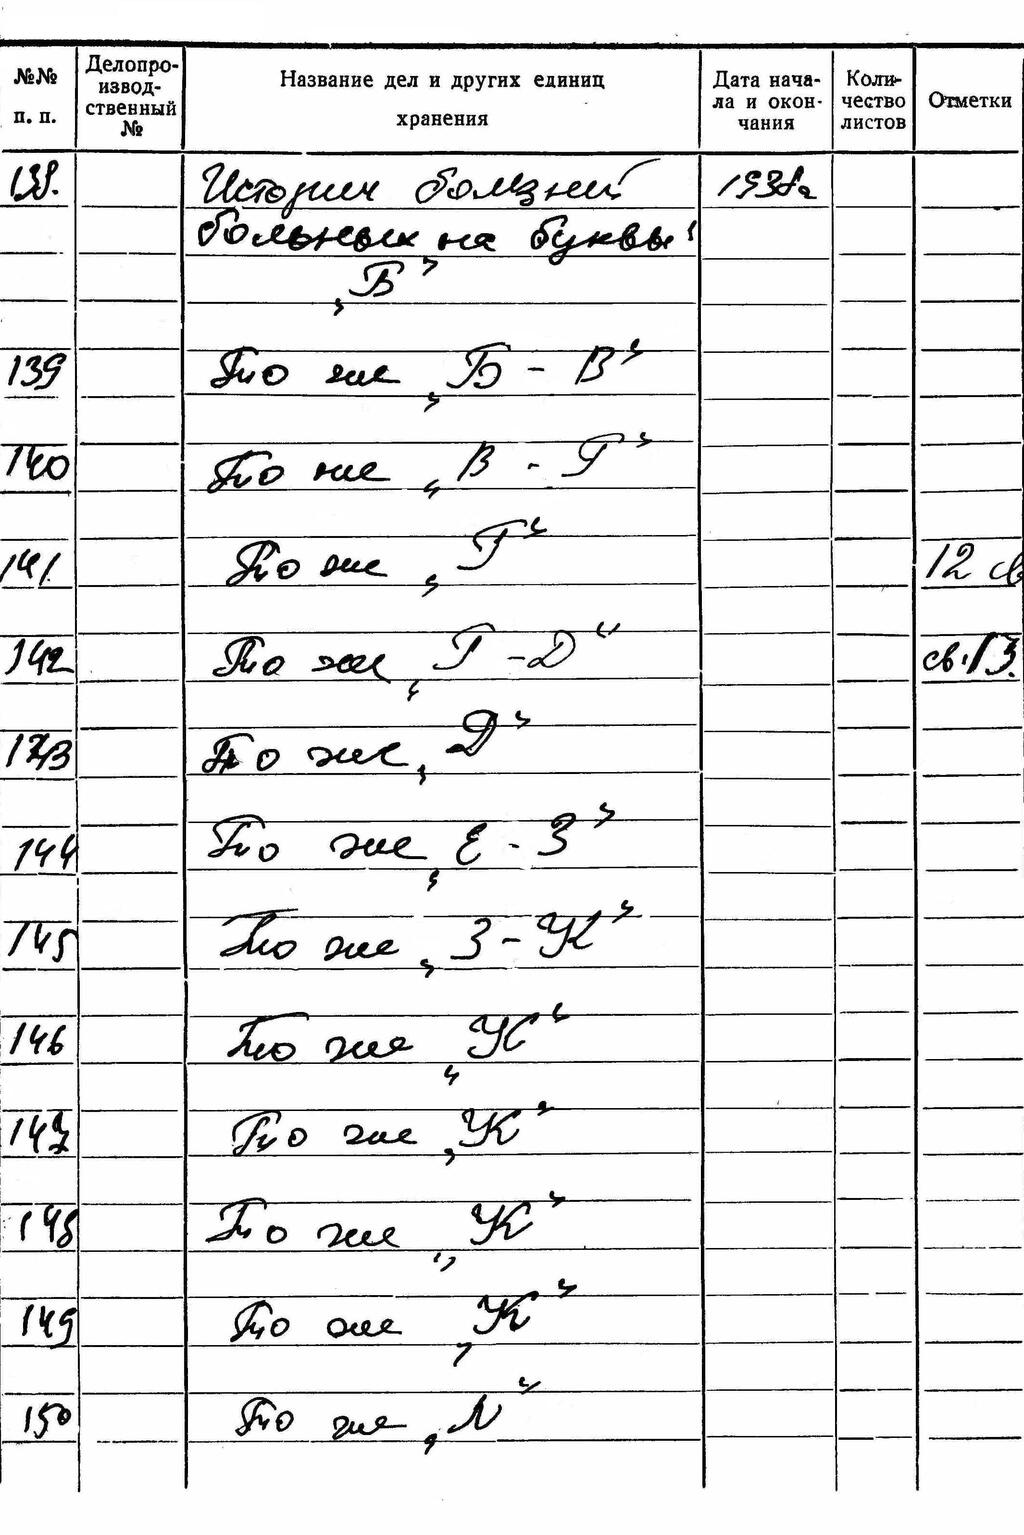 №№ п. п.
Делопро-
извод-
ственный
№
Название дел и других единиц
хранения
Дата нача-
ла и окон-
чания
Коли-
чество
листов
Отметки
138. Истории болезней 1938г
больных на буквы
„Б"
139 То же „Б - В"
140 То же „В - Г"
141. То же „Г" 12 св
142 То же „Г - Д" св. 13.
143 То же „Д"
144 То же „Е - З"
145 То же „З - К"
146 То же „К"
147 То же „К"
148 То же „К"
149 То же „К"
150 То же „Л"